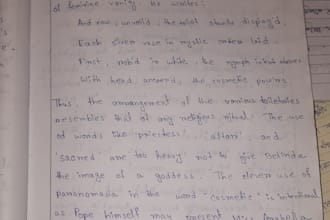 of feminine vanity. He writes:
And now, unveil'd, the toilet stands display'd
Each silver vase in mystic order laid
First, rob'd in white, the nymph intent adores
With head, uncover'd, the cosmetic powers.
Thus, the arrangement of the various toiletries
resembles that of any religious ritual. The use
of words like 'priestess', 'altar', and
'sacred' are too heavy not to give Belinda
the image of a goddess. The clever use of
paronomasia in the word "cosmetic" is intentional
as Pope himself may present this